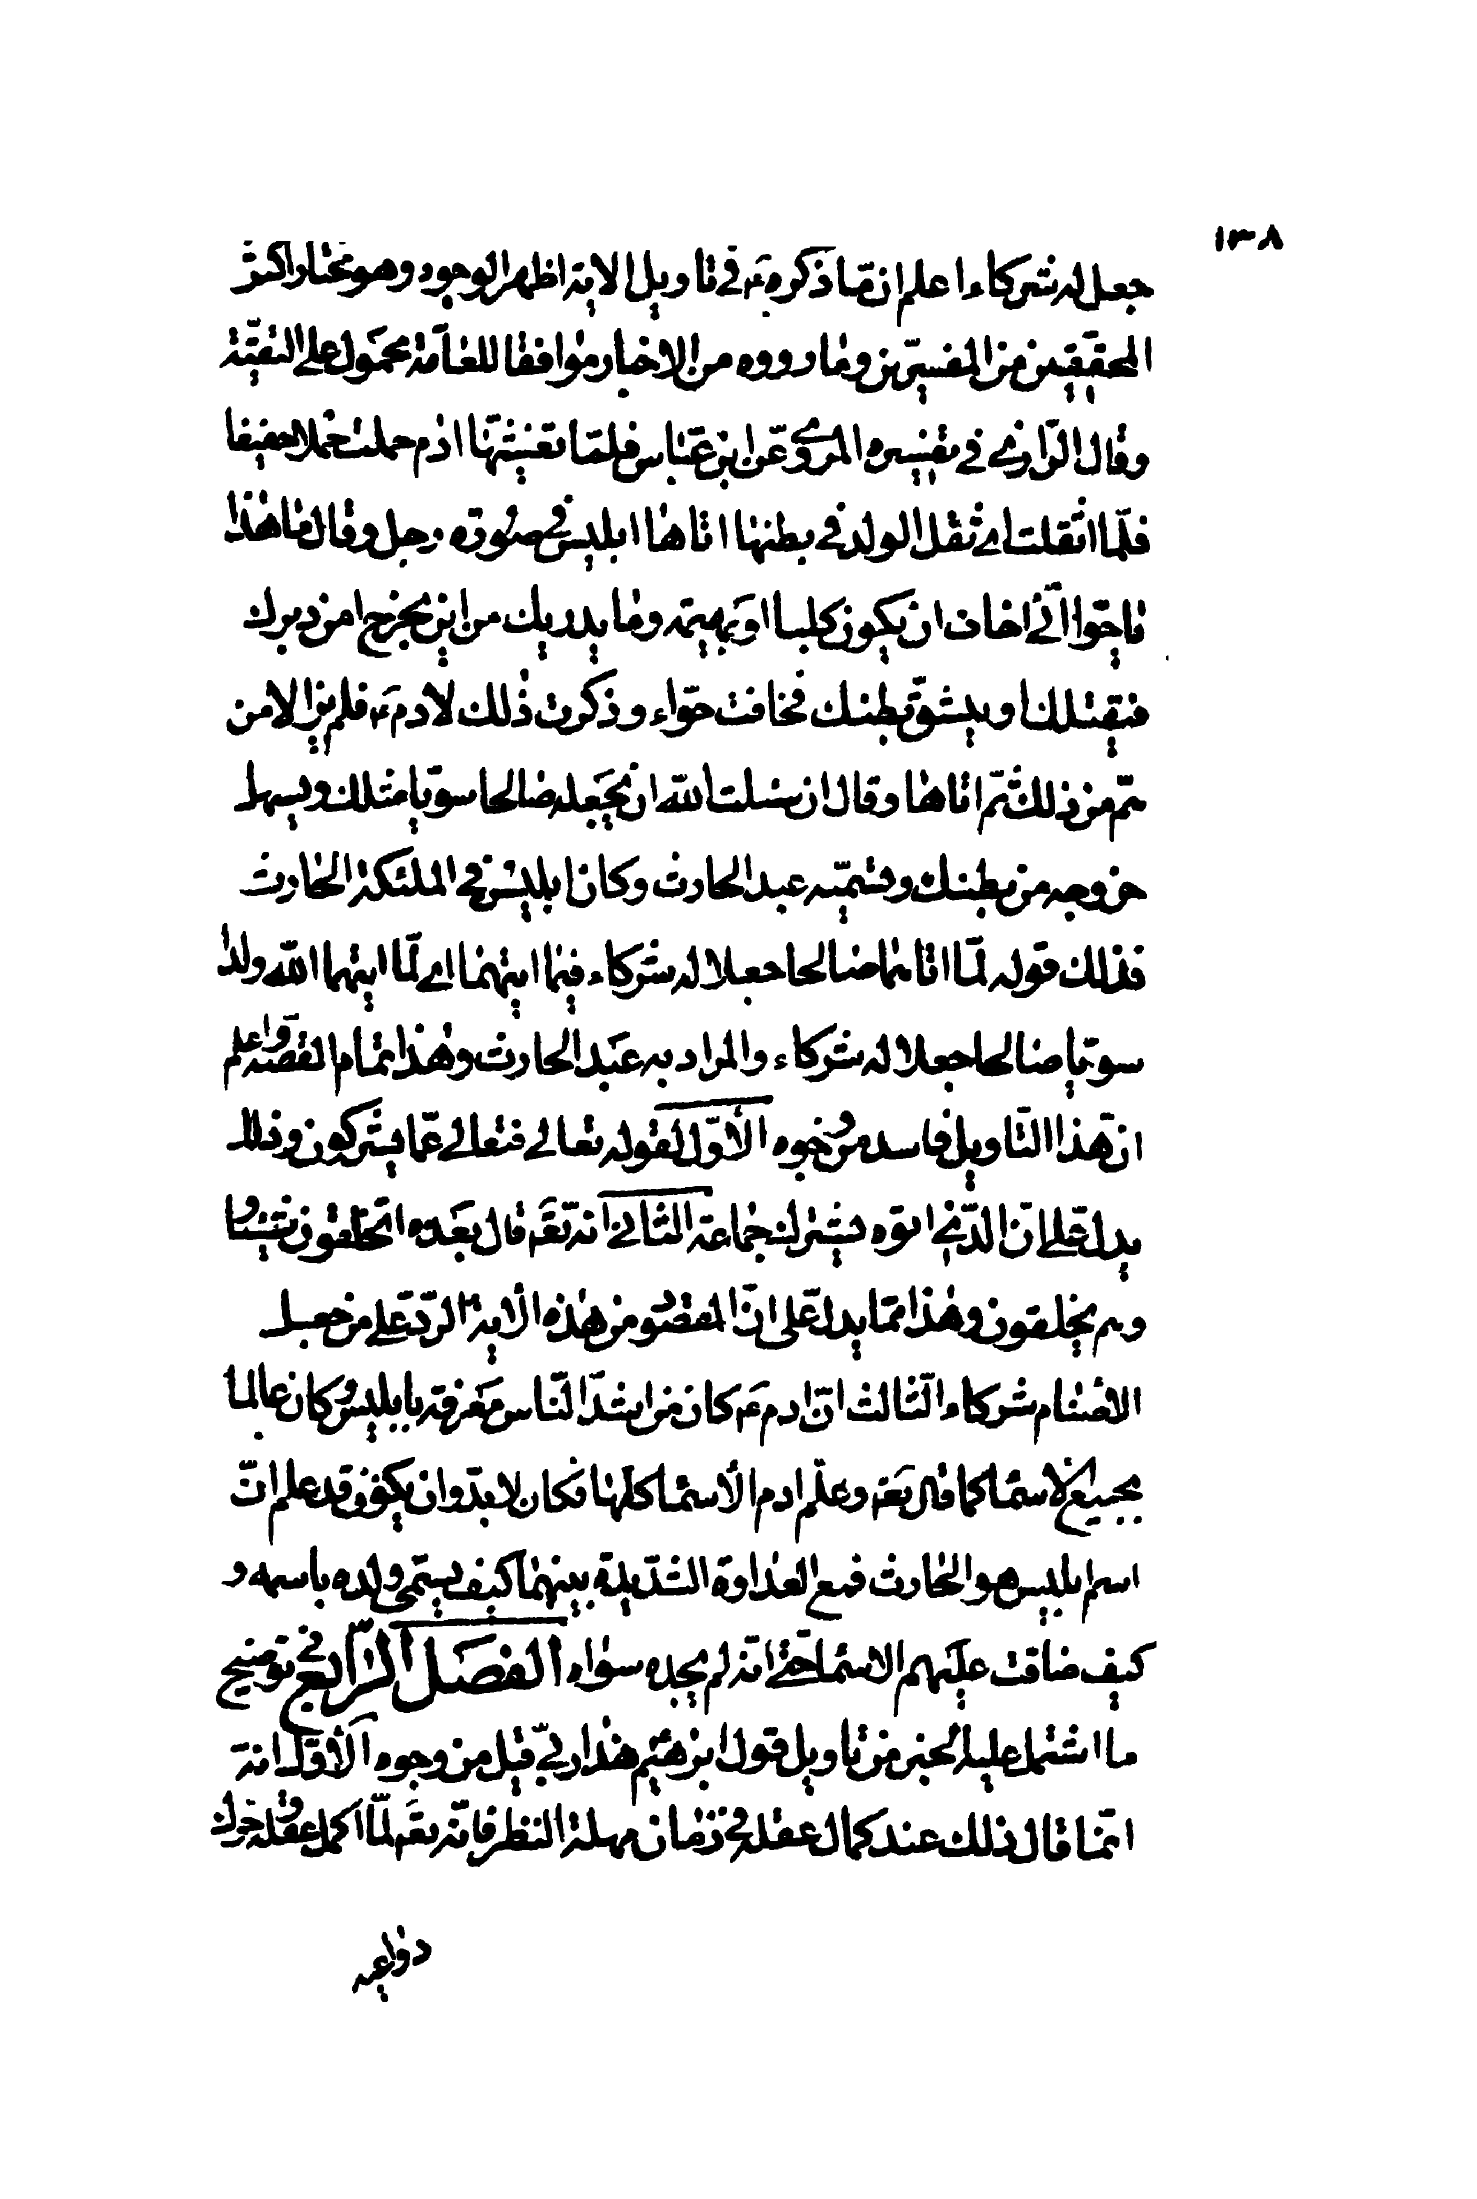 ١٣٨
جعل له شركاء اعلم ان ما ذكره ع في تاويل الاية اظهر الوجوه وهو مختار اكثر
المحققين من المفسرين وما رووه من الاخبار موافقا للعامة محمول على التقية
وقال الرازي في تفسيره المروي عن ابن عباس فلما تغشيها ادم حملت حملا خفيفا
فلما اثقلت اي ثقل الولد في بطنها اتاها ابليس في صورة رجل وقال ما هذا
يا حوا اني اخاف ان يكون كلبا او بهيمة وما يدريك من اين يخرج امن دبرك
فيقتلك او يشق بطنك فخافت حواء وذكرت ذلك لادم ع فلم يزالا من
هم من ذلك ثم اتاها وقال ان سئلت الله ان يجعله صالحا سويا مثلك ويسهل
خروجه من بطنك وتسميه عبد الحارث وكان ابليس في الملئكة الحارث
فذلك قوله لما اتاهما صالحا جعلا له شركاء فيما اتيهما اي لما اتيهما الله ولدا
سويا صالحا جعلا له شركاء والمراد به عبد الحارث وهذا تمام القصة واعلم
ان هذا التاويل فاسد من وجوه الأول لقوله تعالى فتعالى عما يشركون وذلك
يدل على ان الذين اتوه بشرك جماعة الثاني انه تعم قال بعده اتخلقون شيئا و
هم يخلقون وهذا مما يدل على ان المقصود من هذه الاية الرد على من جعل
الأصنام شركاء الثالث ان ادم ع كان من اشد الناس معرفة بابليس وكان عالما
بجميع الاسماء كما قال تعم وعلم ادم الأسماء كلها فكان لا بد وان يكون قد علم ان
اسم ابليس هو الحارث فمع العداوة الشديدة بينهما كيف يسمي ولده باسمه و
كيف ضاقت عليهم الاسماء حتى انه لم يجده سواه الفصل الرابع في توضيح
ما اشتمل عليه الخبر من تاويل قول ابرهيم هذا ربي قيل من وجوه الأول انه
انما قال ذلك عند كمال عقله في زمان مهلة النظر فانه تعم لما اكمل عقله وحرك
دواعيه